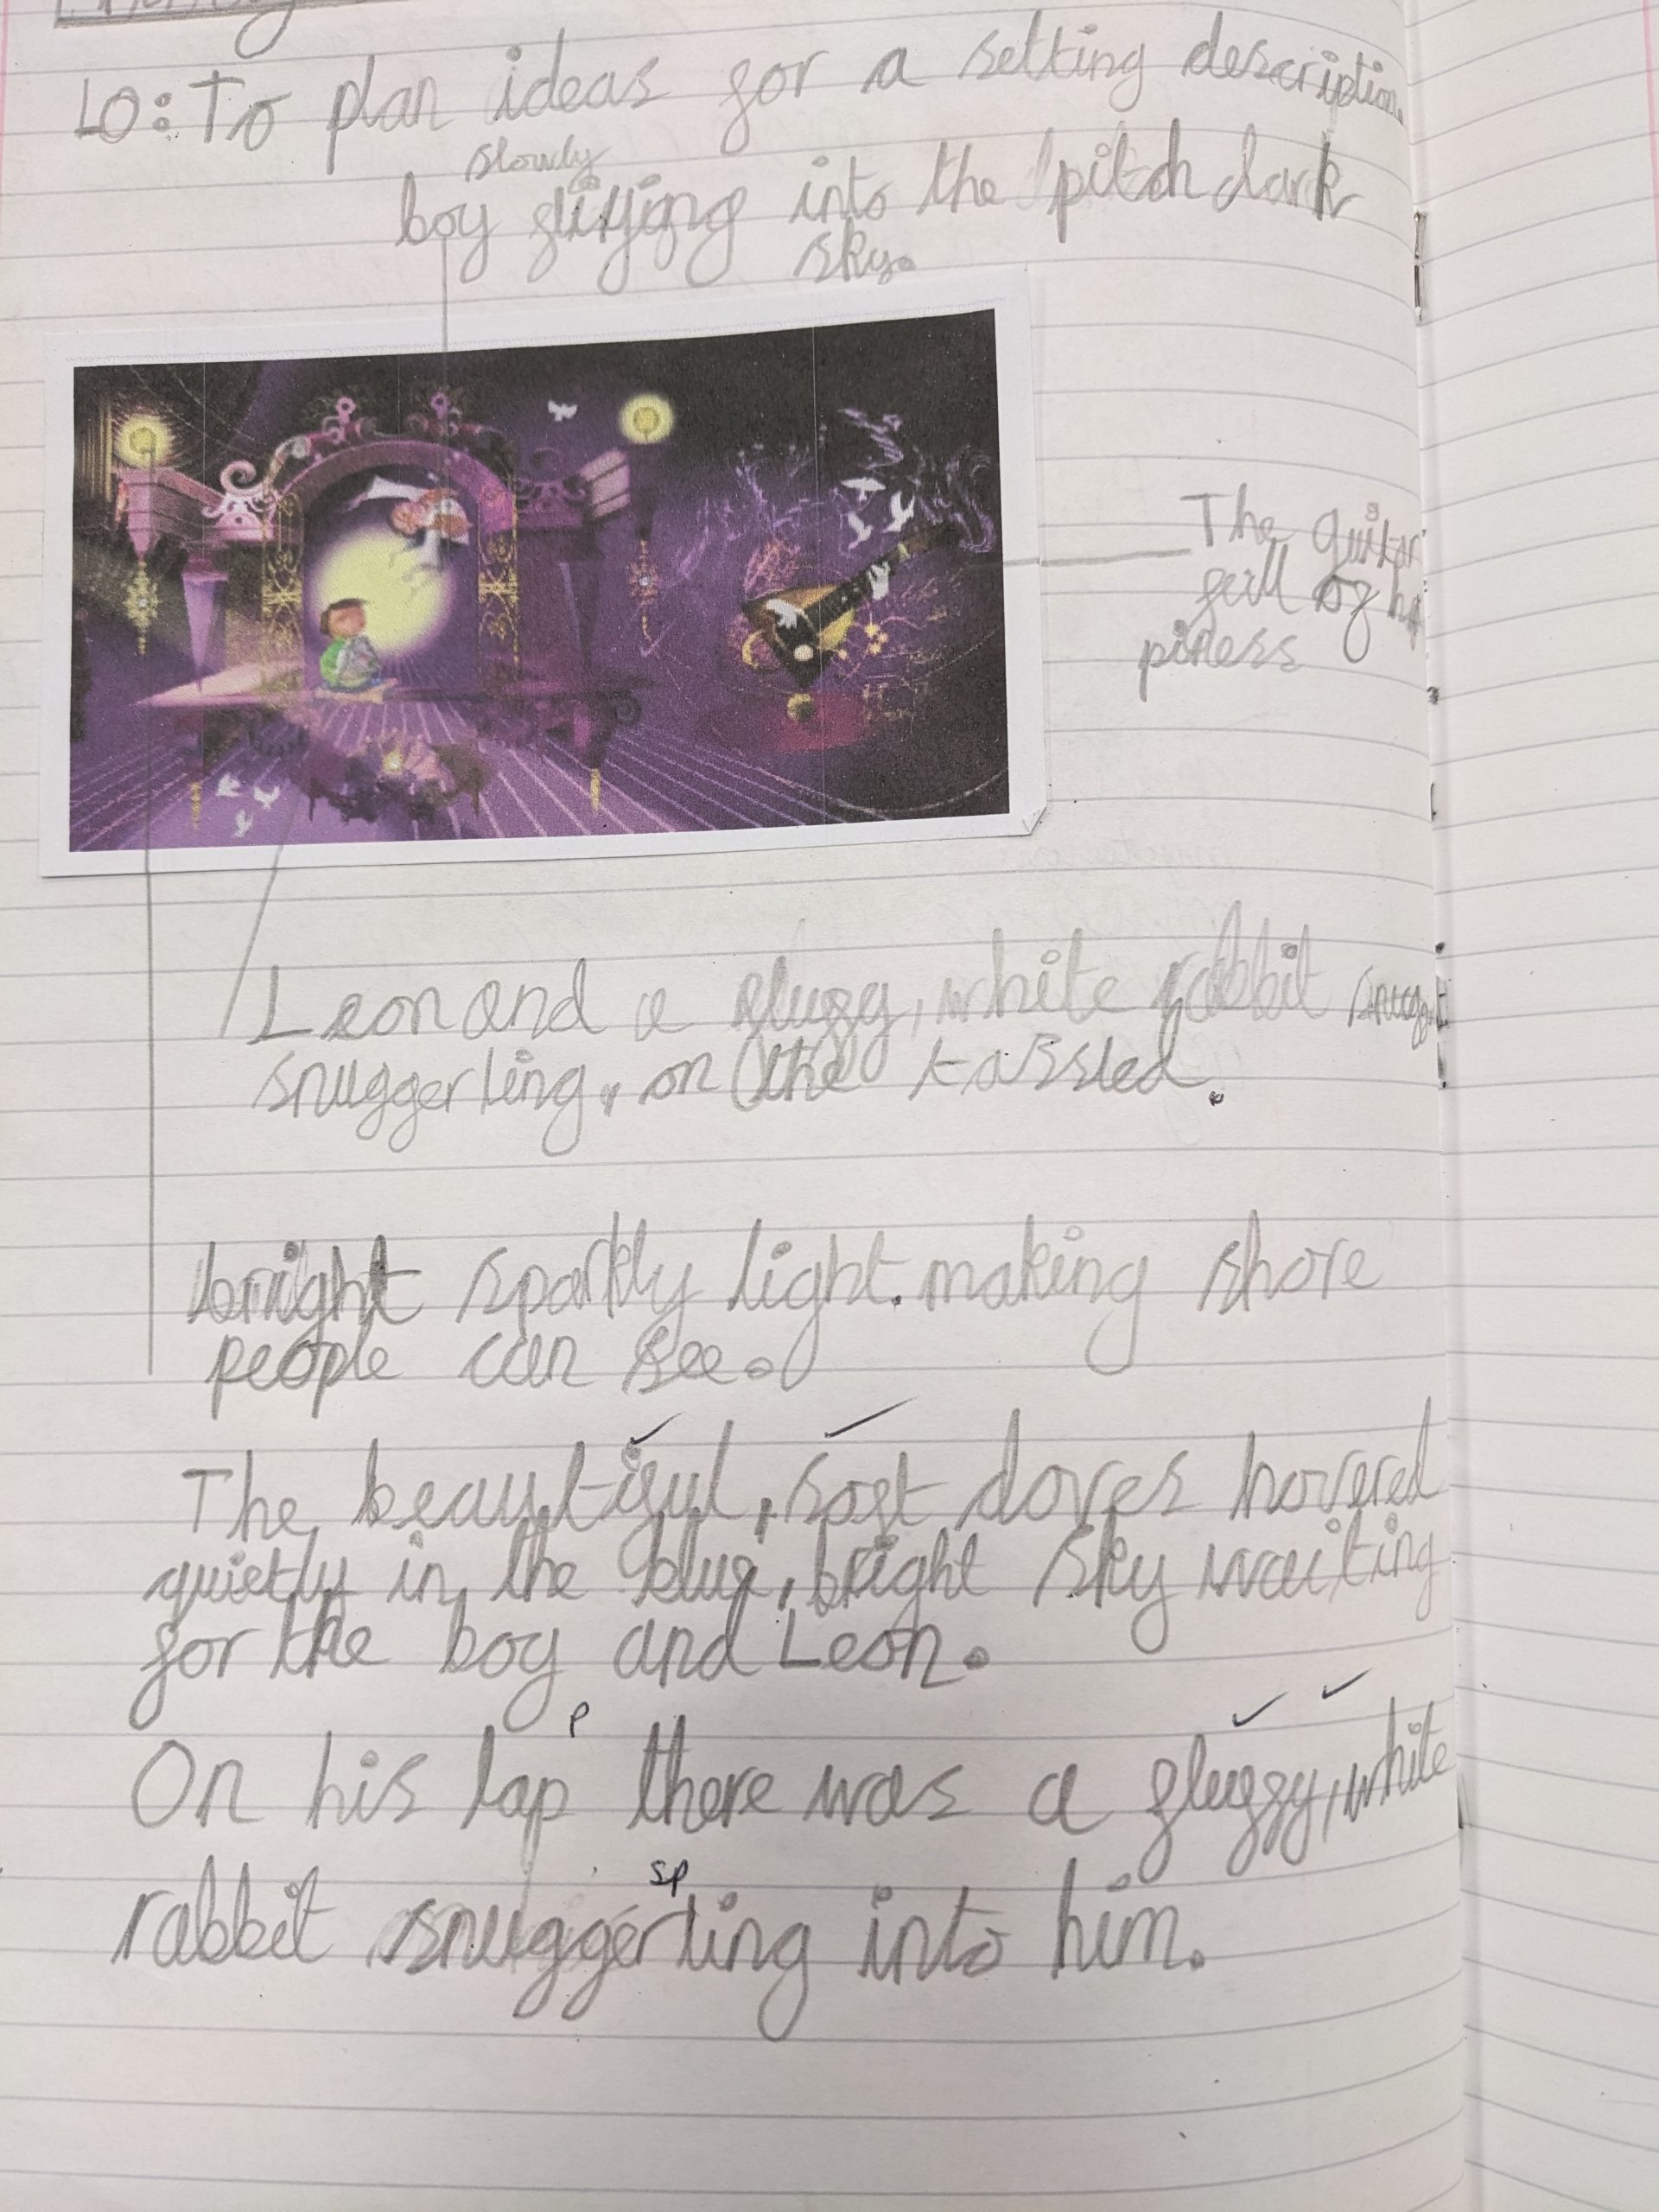 LO: To plan ideas for a setting description.
slowly
boy fliying into the pitch dark
sky.
The guitar
full of ha
piness
Leon and a fluffy, white rabbit
snuggerling, on the tassled.
bright sparkly light. making shore
people can see.
The beautiful, soft doves hovered
quietly in the blue, bright sky waiting
for the boy and Leon.
P
On his lap there was a fluffy, white
sp
rabbit snuggerling into him.